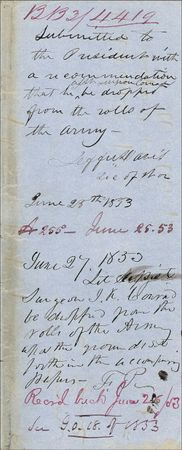 BB3/4419
Submitted to
the President with
a recommendation
that he be dropped
from the rolls of
the army—
Jeff Davis
Sec of War
June 25th 1853
A 255 - June 25. 53
June 27. 1853
Let Assist
Surgeon J. K.
be dropped from the
rolls of the Army
upon the ground set
forth in the accompany
Papers — F. P.
Recd back June 28/53
See G.O. 18 of 1853